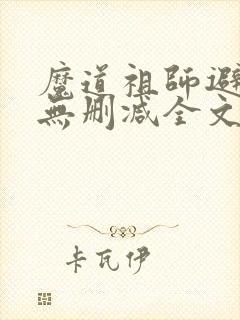 魔道祖師避
無刪减全文
卡瓦伊